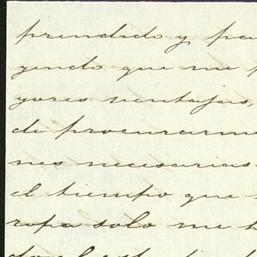 prendido y pa
yendo que me p
yores ventajas,
de procurarme
nes necesarias
el tiempo que
ropa solo me h